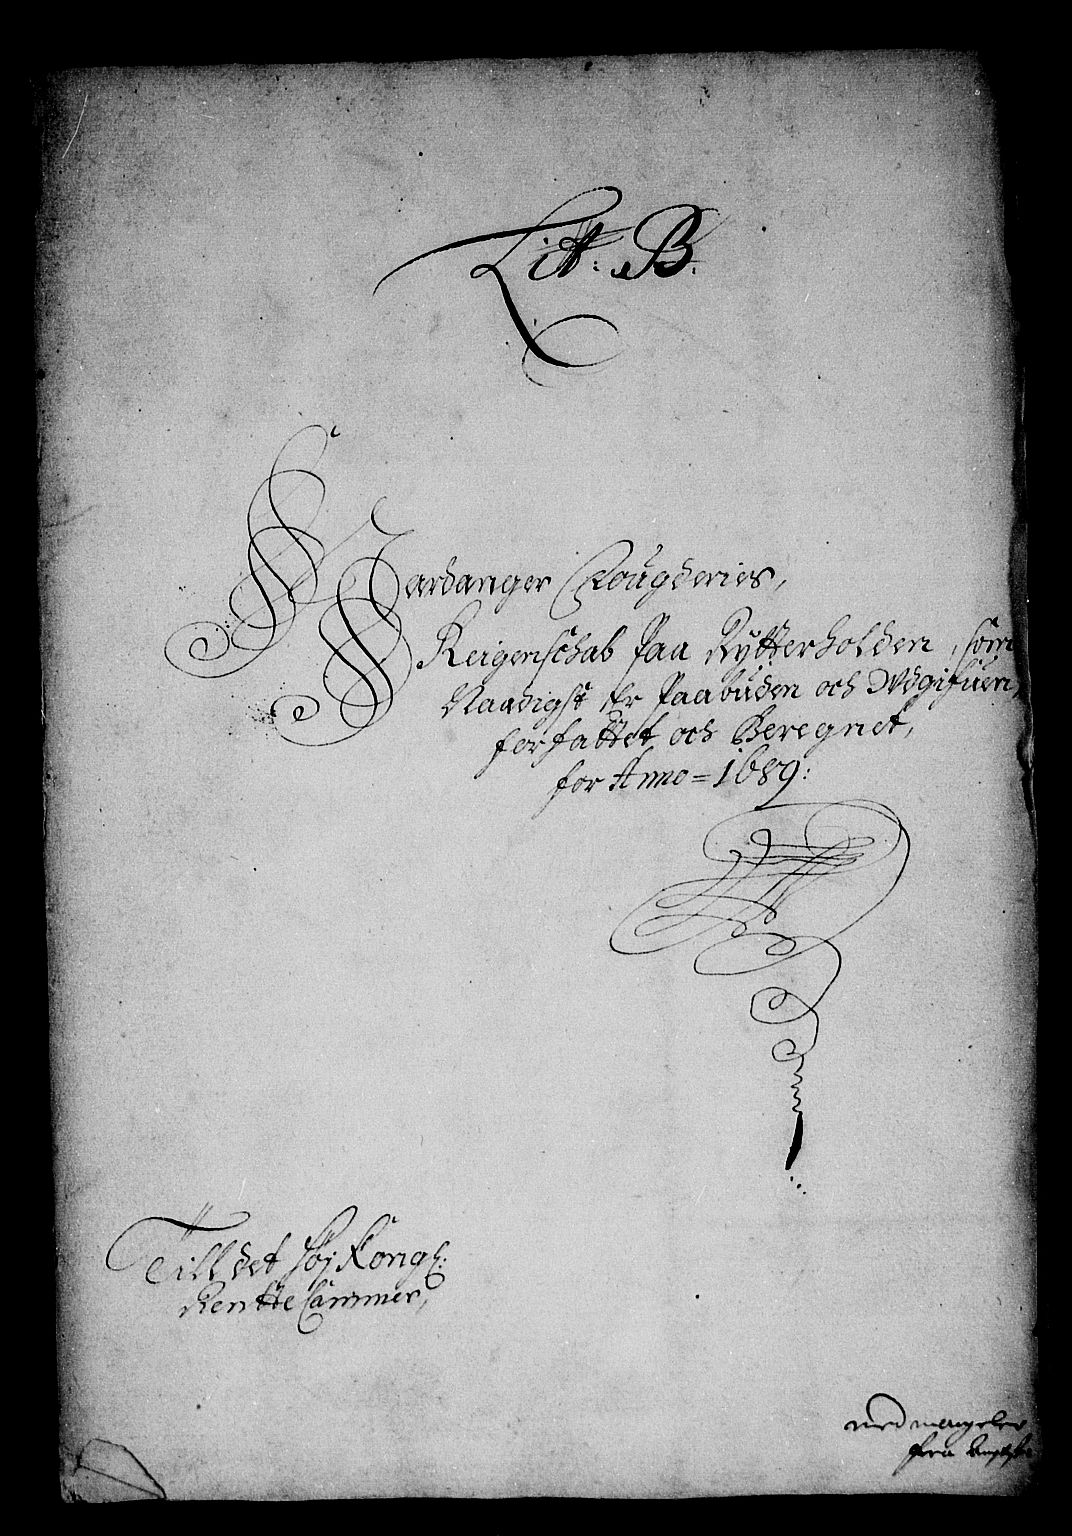 Litt: B.
Hardanger Fougderies,
Reigenschab Paa Rytterholden, som
Naadigst Er Paabuden och Udgifuen,
forfattet och Beregnet,
for Anno = 1689:
Till det høj Kongl:
Rentte Cammer,
med mangeler
fra